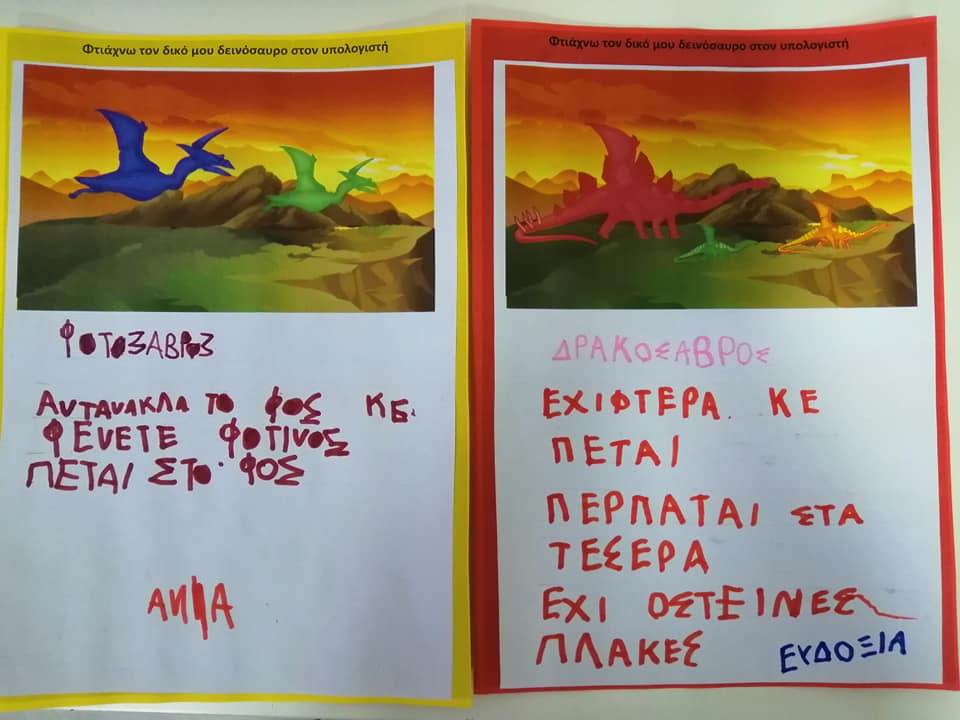 Φτιάχνω τον δικό μου δεινόσαυρο στον υπολογιστή
ΦΟΤΟΣΑΒΡΟΣ
ΑΝΤΑΝΑΚΛΑ ΤΟ ΦΟΣ ΚΕ.
ΦΕΝΕΤΕ ΦΟΤΙΝΟΣ
ΠΕΤΑΙ ΣΤΟ ΦΟΣ
ΑΝΝΑ
Φτιάχνω τον δικό μου δεινόσαυρο στον υπολογιστή
ΔΡΑΚΟΣΑΒΡΟΣ
ΕΧΙΦΤΕΡΑ. ΚΕ
ΠΕΤΑΙ
ΠΕΡΠΑΤΑΙ ΣΤΑ
ΤΕΣΕΡΑ
ΕΧΙ ΟΣΤΕΙΝΕΣ
ΠΛΑΚΕΣ
ΕΥΔΟΞΙΑ